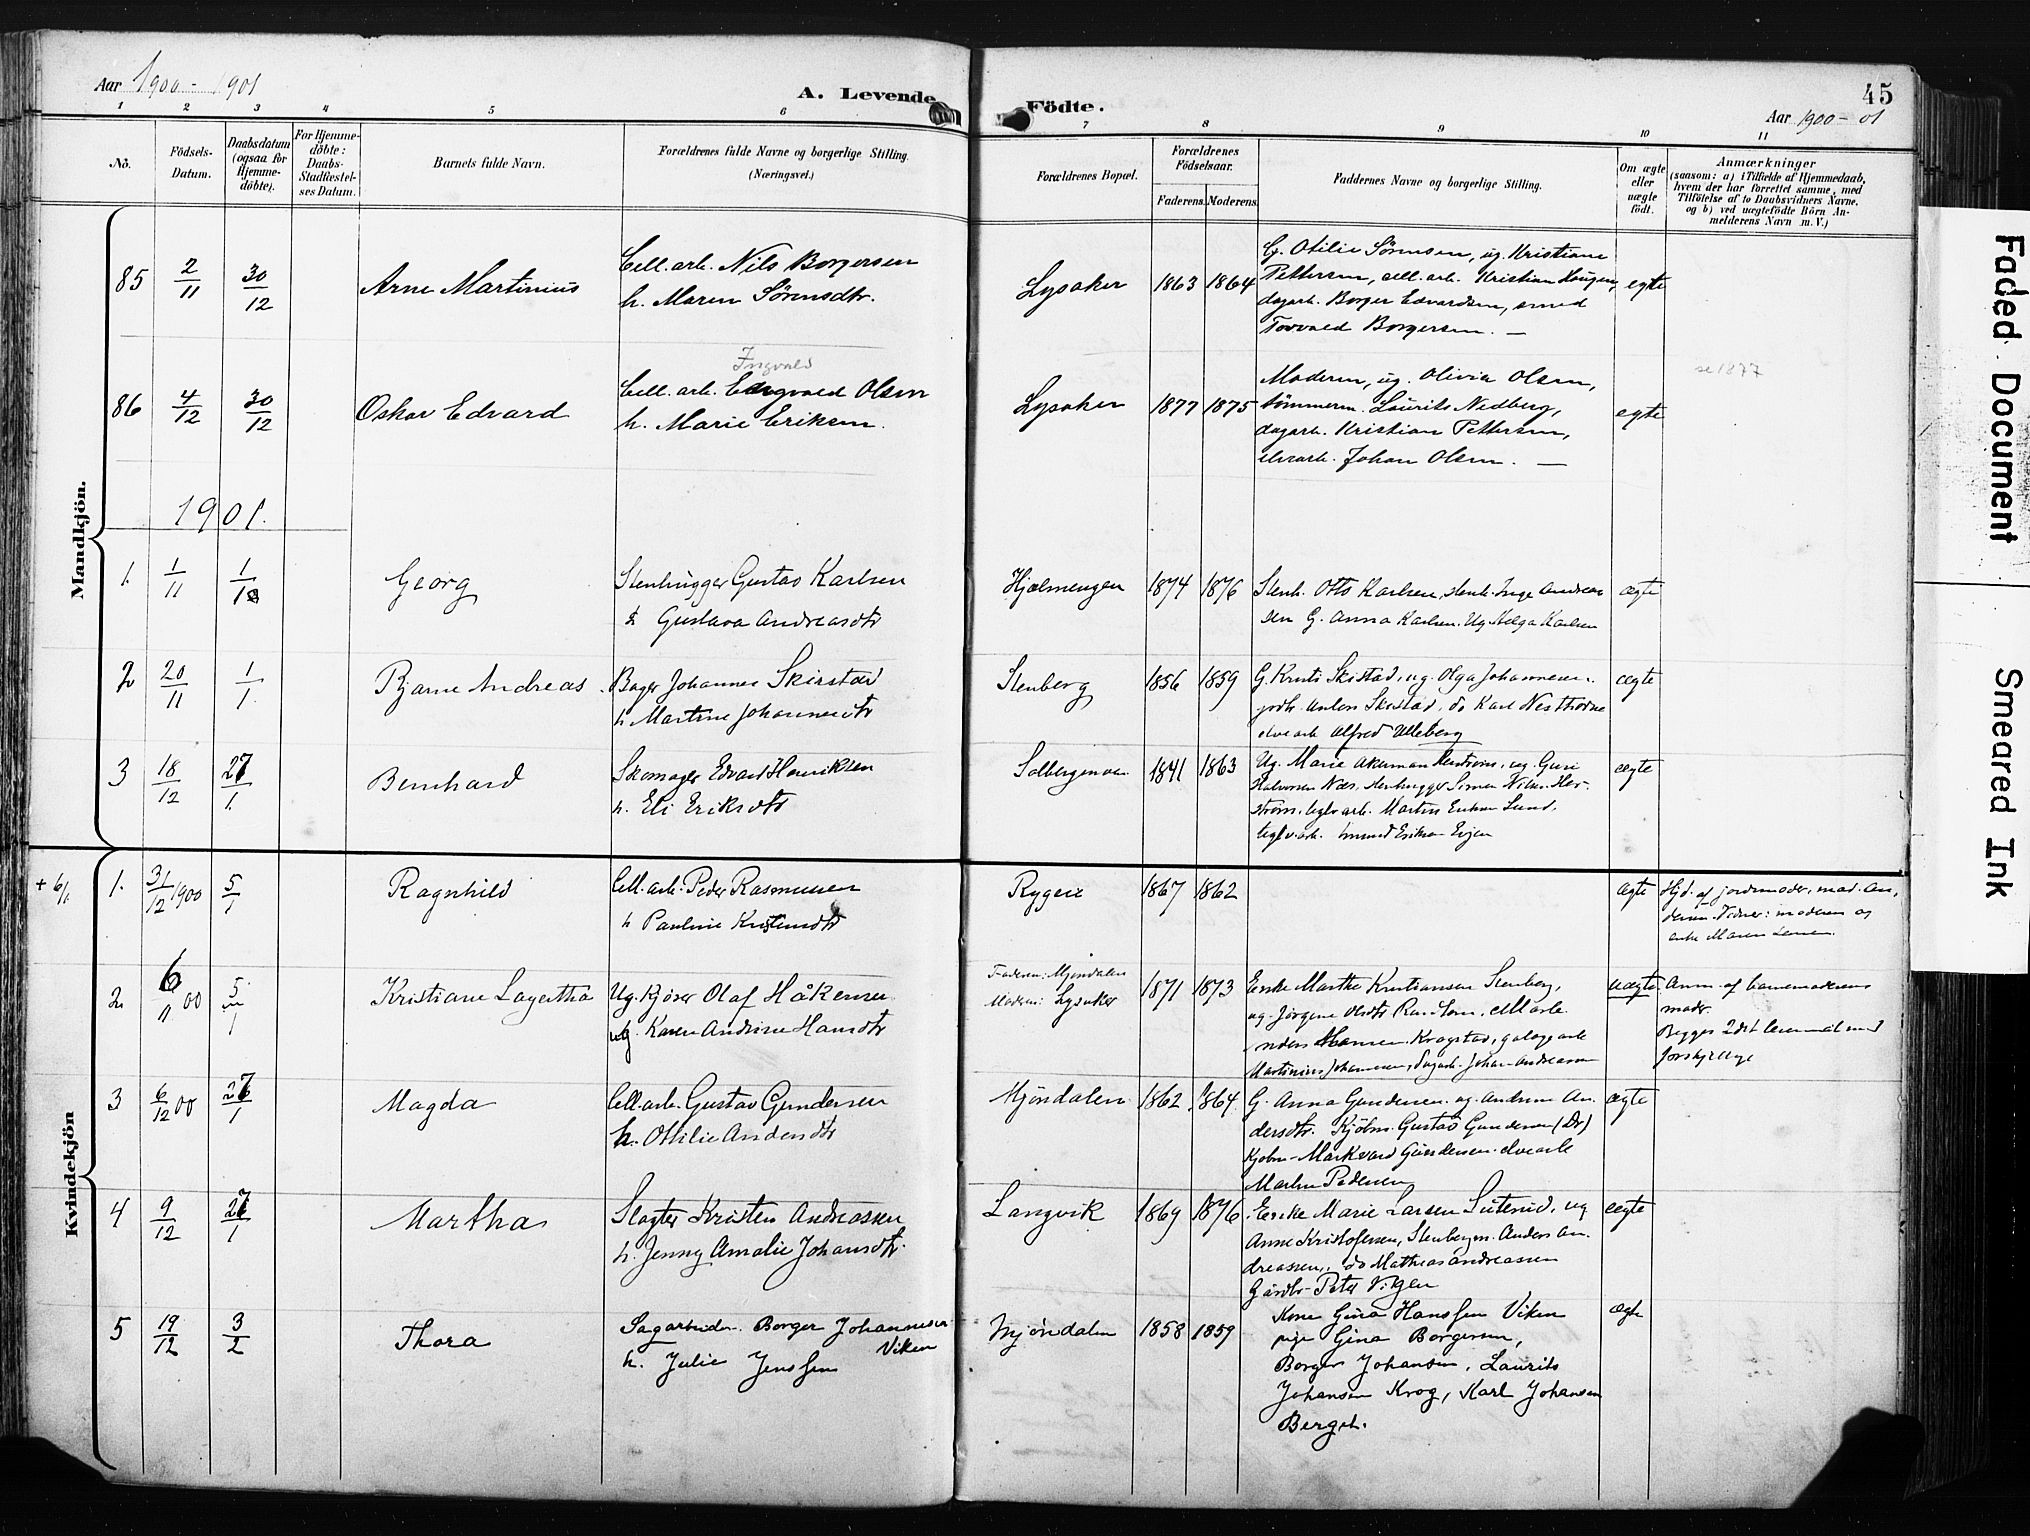 Aar 1900 - 1901
A. Levende Födte.
45
Aar 1900 - 01
1 2 3 4 5 6 7 8 9 10 11
No.
Födsels-
Datum.
Daabsdatum
(ogsaa for
Hjemme-
döbte).
For Hjemme-
döbte:
Daabs-
Stadfæstel-
ses Datum.
Barnets fulde Navn.
Forældrenes fulde Navne og borgerlige Stilling.
(Næringsvei.)
Forældrenes Bopæl.
Forældrenes
Födselsaar.
Faderens. Moderens.
Faddernes Navne og borgerlige Stilling.
Om ægte
eller
uægte
födt.
Anmærkninger
(saasom: a) i Tilfælde af Hjemmedaab,
hvem der har forrettet samme, med
Tilföielse af to Daabsvidners Navne.
og b) ved uægtefödte Börn An-
melderens Navn m. V.)
Mandkjön.
85 2/11 30/12 Arne Martinius
Cell. arb. Nils Borgersen
h. Maren Sørensdtr.
Lysaker 1863 1864
G. Otilie Sørensen, ug. Kristiane
Pettersen, cell. arb. Kristian Haugen,
dagarb. Borger Edvardsen, smed
Torvald Borgersen. —
egte
86 4/12 30/12 Oskar Edvard
Ingvald
Cell. arb. Engvald Olsen
h. Marie Eriksen.
Lysaker 1877 1875
Moderen, ug. Olivia Olsen,
tømmerm. Laurits Nedberg,
dagarb. Kristian Pettersen,
elvearb. Johan Olsen. —
egte
se 1877
1901.
1. 1/11 1/1 Georg
Stenhugger Gustav Karlsen
h. Gustava Andreasdtr
Hjælmengen 1874 1876
Stenh. Otto Karlsen, stenh. Inge Andrea
sen G. Anna Karlsen. Ug Helga Karlsen
ægte
2 20/11 1/1 Bjarne Andreas.
Bager Johannes Skistad
h. Martine Johannesdtr
Stenberg 1856 1859
G. Kristi Skistad, ug. Olga Johannesen.
gdbr. Anders Skistad, do Karl
elvearb Alfred Ulleberg
ægte
3 18/12 27/1. Bernhard
Skomager Edvard Henriksen
h. Eli Eriksdtr
Solbergmoen 1841 1863
Ug. Marie Akerman, ug. Guri
Halvorsen Næs, stenhugger Simen Nilsen Her-
strøm, teglv.arb. Martin Eriksen Lund,
teglv.arb. Amund Eriksen Evjen
ægte
Kvindekjön
+ 6/1. 1. 31/12 1900 5/1 Ragnhild
Cell. arb. Peder Rasmussen
h Pauline Kristensdtr
Ryggen 1867 1862
ægte
Hjd. af jordmoder, mad. An-
dersen. Vidner: moderen og
enke Maren Larsen.
2 6/11 00 5/1 Kristiane Lagertha
Ug. Kjører Olaf Håkensen
ug. Karen Andrine Hansdtr
Faderen: Mjøndalen
Moderen: Lysaker
1871 1873
Enke Marthe Kristiansen Stenberg,
ug. Jørgine Olsdtr
Hansen Kragstad,
Martinius Johannesen, Dagarb. Johan Andreassen
uægte.
Anm. af barnemoderens
moder.
Begges 2det leiermaal med
forskjellige
3 6/12 00 27/1 Magda
Cell. arb. Gustav Gundersen
h. Ottilie Andersdtr
Mjøndalen 1862 1864
G. Anna Gundersen. ug. Andrine An-
dersdtr. Kjøbm. Gustav Gundersen (Dr)
Kjøbm - Markvard Gundersen. elvearb
Martin Pedersen
ægte
4 9/12 27/1 Martha
Slagter Kristen Andreassen
h. Jenny Amalie Johansdtr.
Langvik 1869 1876
Enke Marie Larsen Suterud. ug
Anne Kristofersen, Stenbergm. Anders An-
dreassen, do Mathias Andreassen
Gårdbr Peter Vigen
ægte
5 19/12 3/2 Thora
Sagarbeider. Borger Johannesen
Viken
h. Julie Jenssen
Mjøndalen 1858 1859
Kone Gina Hanssen Viken
pige Gina Borgersen,
Borger Johansen, Laurits
Johansen Krog, Karl Johansen
Berget.
ægte
Faded Document
Smeared Ink